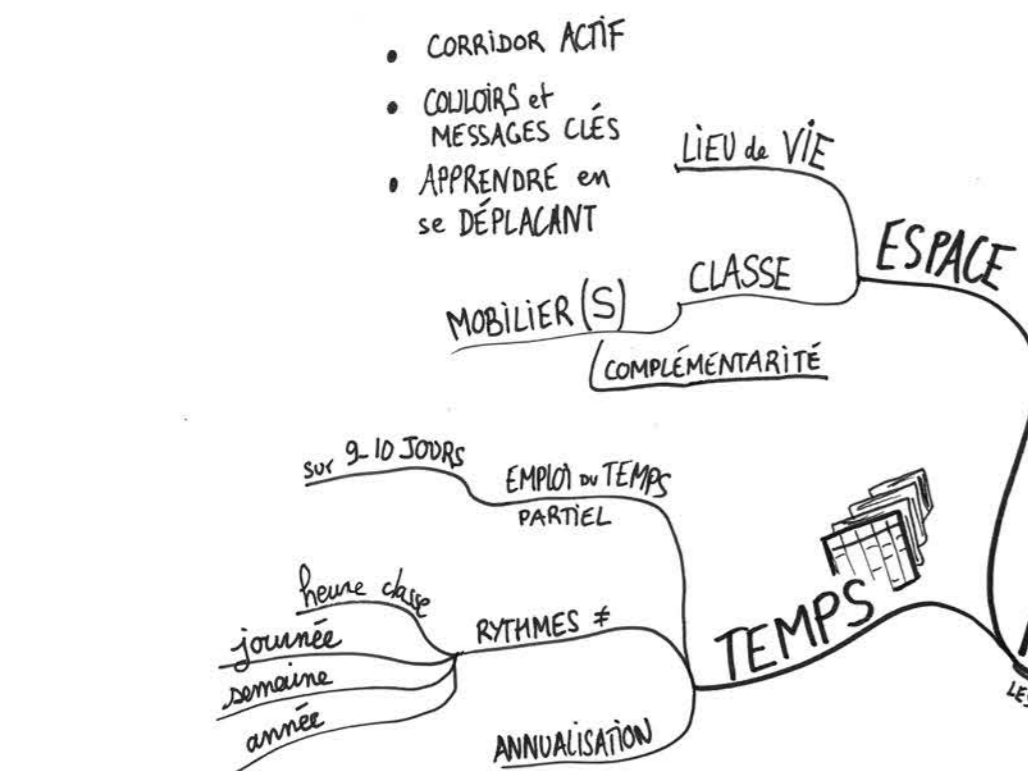 • CORRIDOR ACTIF
• COULOIRS et
MESSAGES CLÉS
• APPRENDRE en
se DÉPLAÇANT
LIEU de VIE
ESPACE
CLASSE
MOBILIER (S)
COMPLÉMENTARITÉ
sur 9-10 JOURS
EMPLOI DU TEMPS
PARTIEL
heure classe
journée
semaine
année
RYTHMES ≠
TEMPS
ANNUALISATION
LES